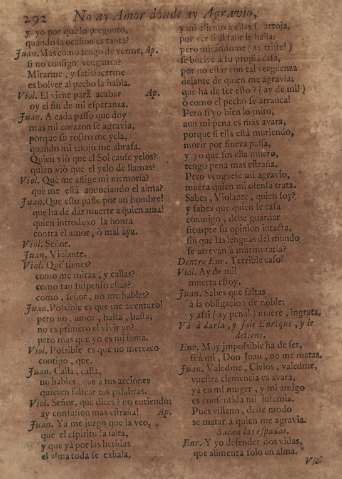 292 No ay Amor donde ay Agravio,
y yo por què lo pregunto,
quando la ocasion es tanta?
Juan. Mas como tengo de verme, Ap.
si no consigo venganças?
Mirarme, y satisfacerme
es bolver al pecho la habla.
Viol. El viene para acabar Ap.
oy el fin de mi esperança.
Juan. A cada passo que doy
mas mi coraçon se agravia,
porque se me yela,
quando mi enojo me abrasa.
Quien viò que el Sol cause yelos?
quien viò que el yelo de llamas?
Viol. Que me aflige mi memoria?
què me està anunciando el alma?
Juan. Que esto passe por un hombre!
que ha de dar muerte a quien ama!
quien introduxo la honra
contra el amor, ò mal aya.
Viol. Señor.
Juan. Violante.
Viol. Què tienes?
como me miras, y callas?
como tan suspenso estàs?
como, señor, no me hables?
Juan. Possible es que me aventuro!
pero no, amor, basta, basta;
no es primero el vivir yo?
pero mas que yo es mi fama.
Viol. Possible es que no merezco
contigo, que.
Juan. Calla, calla,
no hables, que a tus acciones
quieren faltar tus palabras.
Viol. Señor, què dices? no entiendo;
ay confusion mas estraña! Ap.
Juan. Ya me juzgo que la veo,
que el espiritu la falta,
y que yà por las heridas
el alma toda se exhala,
y
por ser
pero mirandome (ay triste!)
se buelve à su propria casa,
por no estar con tal verguença
delante de quien me agravia:
què ha de ser esto? (ay de mi!)
ò como el pecho se arranca!
Pero si yo bien lo miro,
aun mi pena es mas avara,
porque si ella està muriendo,
morir por fuerça passa,
y yo que sin ella muero,
tengo pena mas estraña.
Pero venguese mi agravio,
muera quien mi ofensa trata.
Sabes, Violante, quien soy?
y sabes que quien se casa
conmigo, debe guardar
siempre su opinion intacta,
sin que las lenguas del mundo
se atrevan a murmurarla?
Dentro Enr. Terrible caso!
Viol. Ay de mi!
muerta estoy.
Juan. Sabes que faltas
à la obligacion de noble;
y assi (ay pena!) muere, ingrata,
Và à darla, y sale Enrique, y le
detiene.
Enr. Muy impossible ha de ser,
señor Don Juan, no me matas.
Juan. Valedme, Cielos, valedme,
vuestra clemencia es avara,
ya es mi muger, y mi amigo
es
Pues villano, deste modo
se matar à quien me agravia.
Sacan las espadas.
Enr. Y yo defender dos vidas,
que alimenta solo un alma.
Viol.